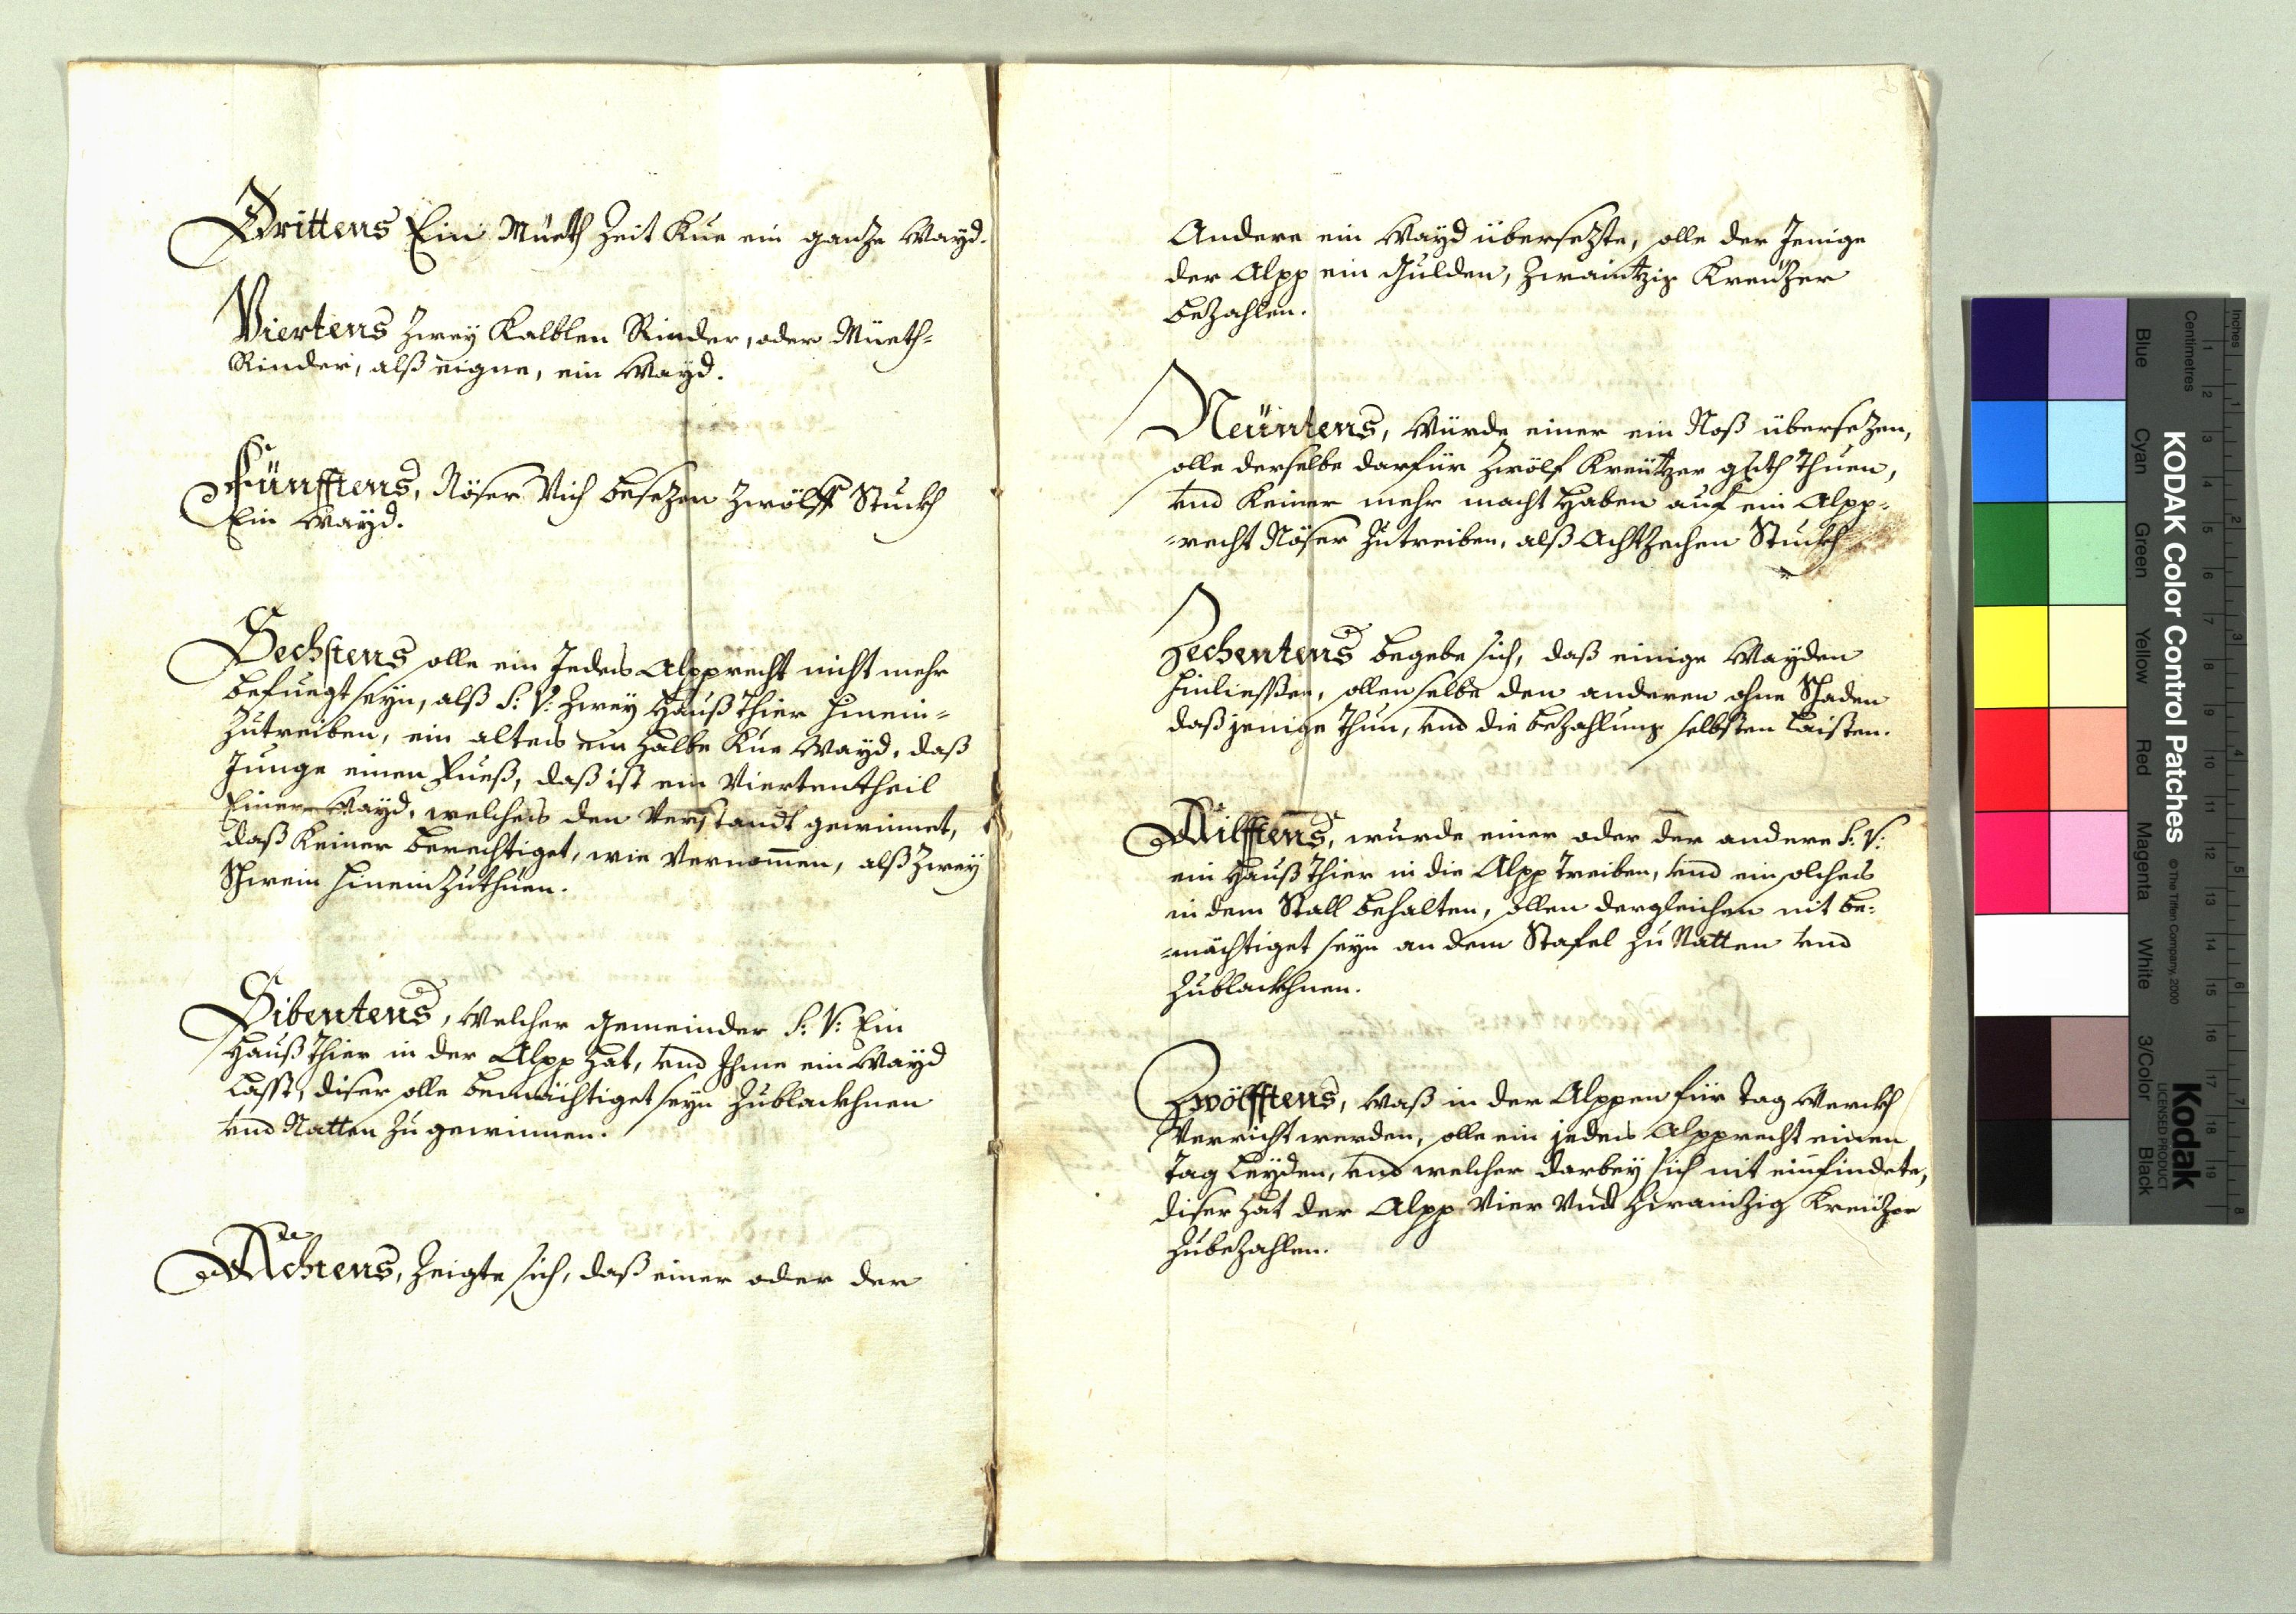 Drittens Ein Müeth Zeit Kue ein ganze Wayd.
Viertens Zwey Kalblen Rinder, oder Müeth-
Rinder, alß eigne, ein Wayd.
Fünfftens, Nöser Vich besezen Zwölff Stuckh
Ein Wayd.
Sechstens solle ein Jedes Alpprecht nicht mehr
befuegt seyn, alß S: V: Zwey Hauß Thier hinein-
Zutreiben, ein altes ein halbe Kue Wayd, daß
Junge einen Fueß, daß ist ein Viertentheil
Einer Wayd, welches den Verstandt gewinnet,
daß Keiner berechtiget, wie Vernommen, alß Zwey
Schwein hinein Zuthuen.
Sibentens, Welcher Gemeinder S: V: Ein
Hauß Thier in der Alpp hat, und Ihme ein Wayd
Lasst, diser solle bemächtiget seyn Zublackhnen
und Natten Zu gewinnen.
Achtens, Zeigte sich, daß einer oder der
Andere ein Wayd übersezte, solle der Jenige
der Alpp ein Gulden, Zwaintzig Kreuzer
beZahlen.
Neüntens, Würde einer ein Noß übersezen,
solle derselbe darfür Zwölf Kreützer guth Thuen,
und Keiner mehr macht Haben auf ein Alpp-
-recht Nöser Zutreiben, alß Achtzechen Stuckh
Zechentens begebe sich, daß einige Wayden
hinliessen, sollen selbe den anderen ohne Schaden
daß jenige Thun, und die beZahlung selbsten Laisten.
Ailfftens, wurde einer oder der andere S: V:
ein Hauß Thier in die Alpp Treiben, und ein solches
in dem Stall behalten, sollen dergleichen nit be-
-mächtiget seyn an dem Stafel Zu Natten und
Zublackhnen.
Zwölfftens, Waß in der Alppen für Tag Werckh
Verricht werden, solle ein jedes Alpprecht einen
Tag Leyden, und welcher darbey sich nit einfindete,
diser hat der Alpp Vier Und Zwainzig Kreüzer
ZubeZahlen.
Inches
Centimetres
Blue
Cyan
Green
Yellow
Red
Magenta
White
3/Color
Black
KODAK Color Control Patches
© The Tiffen Company, 2000
Kodak
LICENSED PRODUCT